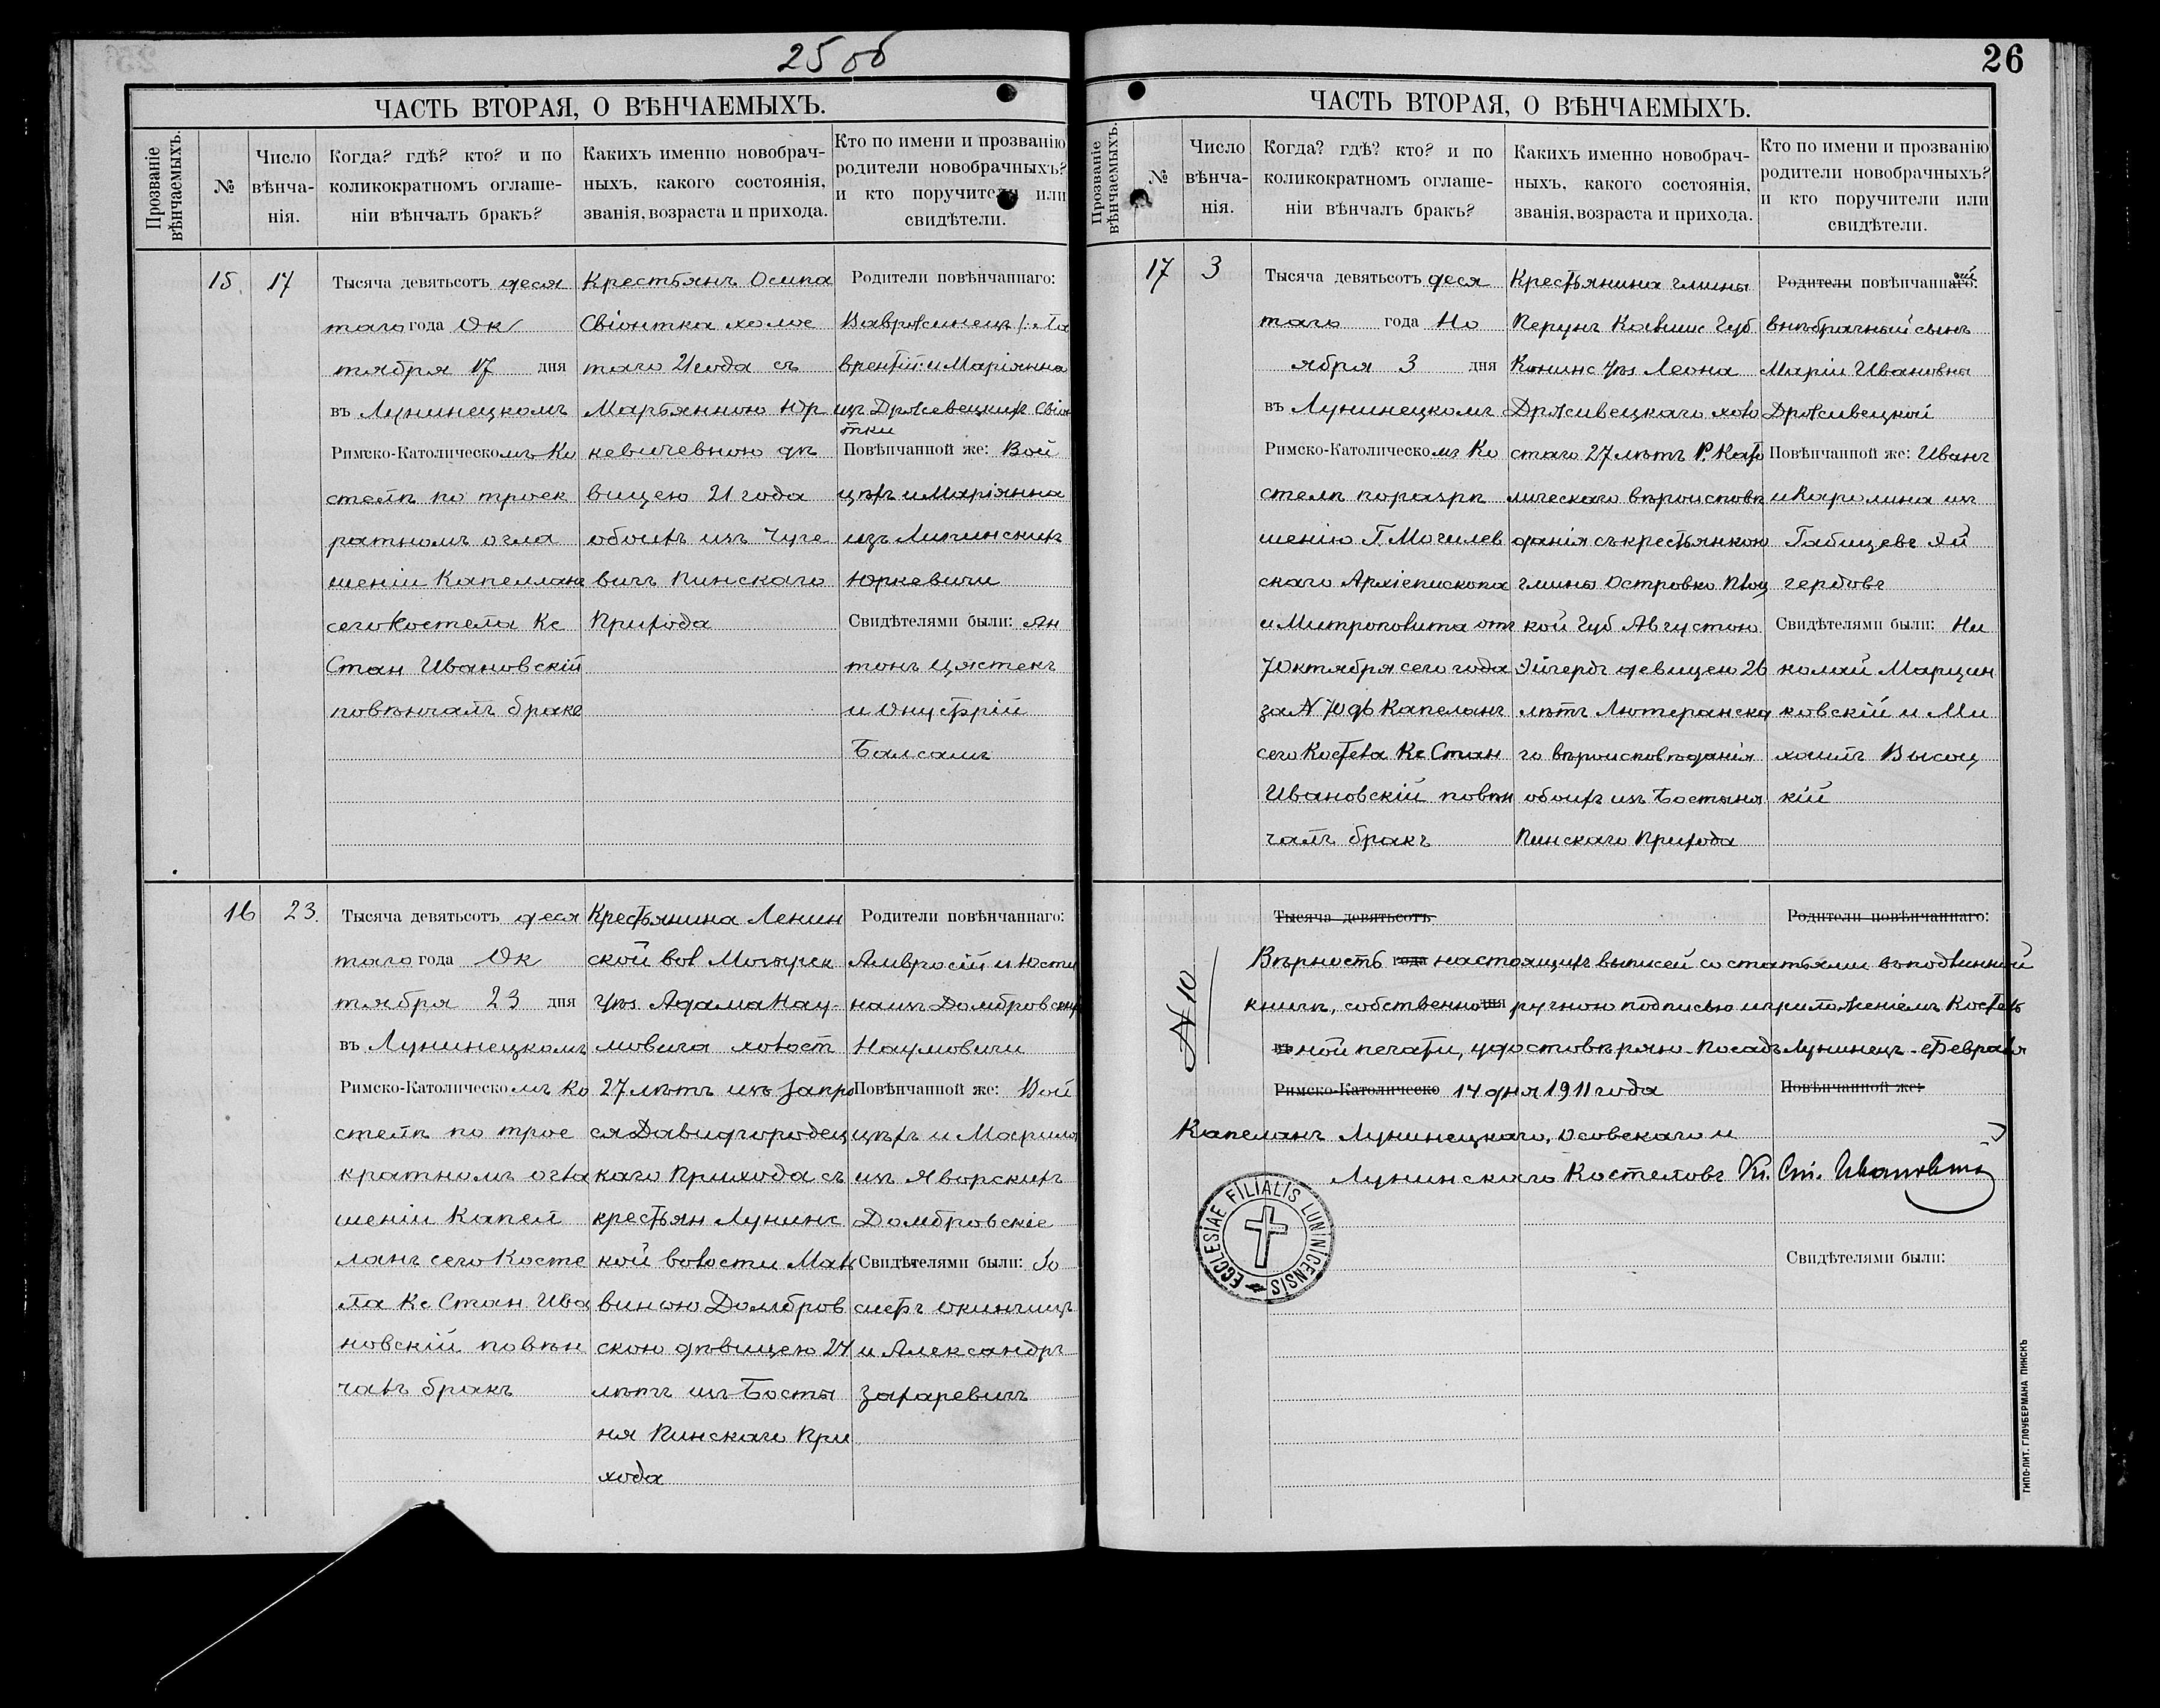 25 об
ЧАСТЬ ВТОРАЯ, О ВѢНЧАЕМЫХЪ.
Прозваніе вѣнчаемыхъ.
№
Число вѣнча-
нія.
Когда? гдѣ? кто? и по
коликократномъ оглаше-
ніи вѣнчалъ бракъ?
Какихъ именно новобрач-
ныхъ, какого состоянія,
званія, возраста и прихода.
Кто по имени и прозванію
родители новобрачныхъ?
и кто поручители или
свидѣтели.
15.
17
Тысяча девятьсотъ деся
таго года Ок
тября 17 дня
въ Лунинецкомъ
Римско-Католическомъ Ко
стелѣ по троек
ратномъ огла
шеніи Капелланъ
сего Костела Кс
Стан Ивановскій
повѣнчалъ бракъ
Крестьянъ Осипа
Свіонтка холос
таго 21 года съ
Марьянною Юр
кевичевною дѣ
вицею 21 года
обоихъ изъ Чуче
вичъ Пинскаго
Прихода
Родители повѣнчаннаго:
Вавржинецъ /: Ла
врентій: и Маріянна
изъ Држевецкихъ Свіон
тки
Повѣнчанной же: Вой
цѣхъ и Маріянна
изъ Липинскихъ
Юркевичи
Свидѣтелями были: Ан
тонъ Цястекъ
и Онуфрій
Балсамъ
16
23.
Тысяча девятьсотъ деся
таго года Ок
тября 23 дня
въ Лунинецкомъ
Римско-Католическомъ Ко
стелѣ по трое
кратномъ огла
шеніи Капел
ланъ сего Косте
ла Кс Стан Ива
новскій повѣн
чалъ бракъ
Крестьянина Ленин
ской вол Мозырск
уѣз. Адама Нау-
мовича холост
27 лѣтъ изъ Запро
ся Давидгородец
каго Прихода съ
крестьян Лунинс
кой волости Маль
виною Домбров
скою дѣвицею 24
лѣтъ изъ Босты
ня Пинскаго При
хода
Родители повѣнчаннаго:
Амвросій и Юсти
на изъ Домбровских
Наумовичи
Повѣнчанной же: Вой
цѣхъ и Марила
изъ Яворскихъ
Домбровскіе
Свидѣтелями были: Іо
сифъ Окинчицъ
и Александръ
Захаревичъ
26
ЧАСТЬ ВТОРАЯ, О ВѢНЧАЕМЫХЪ.
Прозваніе вѣнчаемыхъ.
№
Число вѣнча-
нія.
Когда? гдѣ? кто? и по
коликократномъ оглаше-
ніи вѣнчалъ бракъ?
Какихъ именно новобрач-
ныхъ, какого состоянія,
званія, возраста и прихода.
Кто по имени и прозванію
родители новобрачныхъ?
и кто поручители или
свидѣтели.
17
3
Тысяча девятьсотъ деся
таго года Но
ября 3 дня
въ Лунинецкомъ
Римско-Католическомъ Ко
стелѣ по разрѣ
шенію Г. Могилев
скаго Архіепископа
и Митрополита отъ
7 Октября сего года
за N 7096 Капеланъ
сего Костела Кс Стан
Ивановскій повѣн
чалъ бракъ
Крестьянина гмины
Перунъ Калишс Губ
Конинс Уѣз Леона
Држивецкаго холо
стаго 27 лѣтъ Р. Като
лическаго вѣроисповѣ
данія съ крестьянкою
гмины Островко Плоц
кой Губ Августою
Эйгердъ девицею 26
лѣтъ Лютеранска
го вѣроисповѣданія
обоихъ изъ Бостыня
Пинскаго Прихода
Родители повѣнчаннаго:
ый
внѣбрачный сынъ
Маріи Ивановны
Држивецкой
Повѣнчанной же: Иванъ
и Каролина изъ
Габицевъ Эй
гердовъ
Свидѣтелями были: Ни
колай Марцин
ковскій и Ми
хаилъ Высоц
кій
Тысяча девятьсотъ
Родители повѣнчаннаго:
N 10
Вѣрность года настоящихъ выписей со статьями въ подлинной
книгѣ, собственно дня ручною подписью и приложеніемъ Костель
въ ной печати, удостовѣряю. Посадъ Лунинецъ. Февраля
Римско-Католическо 14 дня 1911 года
Повѣнчанной же:
Капеланъ Лунинецкаго, Осовскаго и
Лунинскаго Костеловъ Кс. Ст. Ивановскій
ECCLESIAE FILIALIS LUNINICENSIS
Свидѣтелями были:
ТИПО-ЛИТ. ГЛОУБЕРМАНА ПИНСКЪ